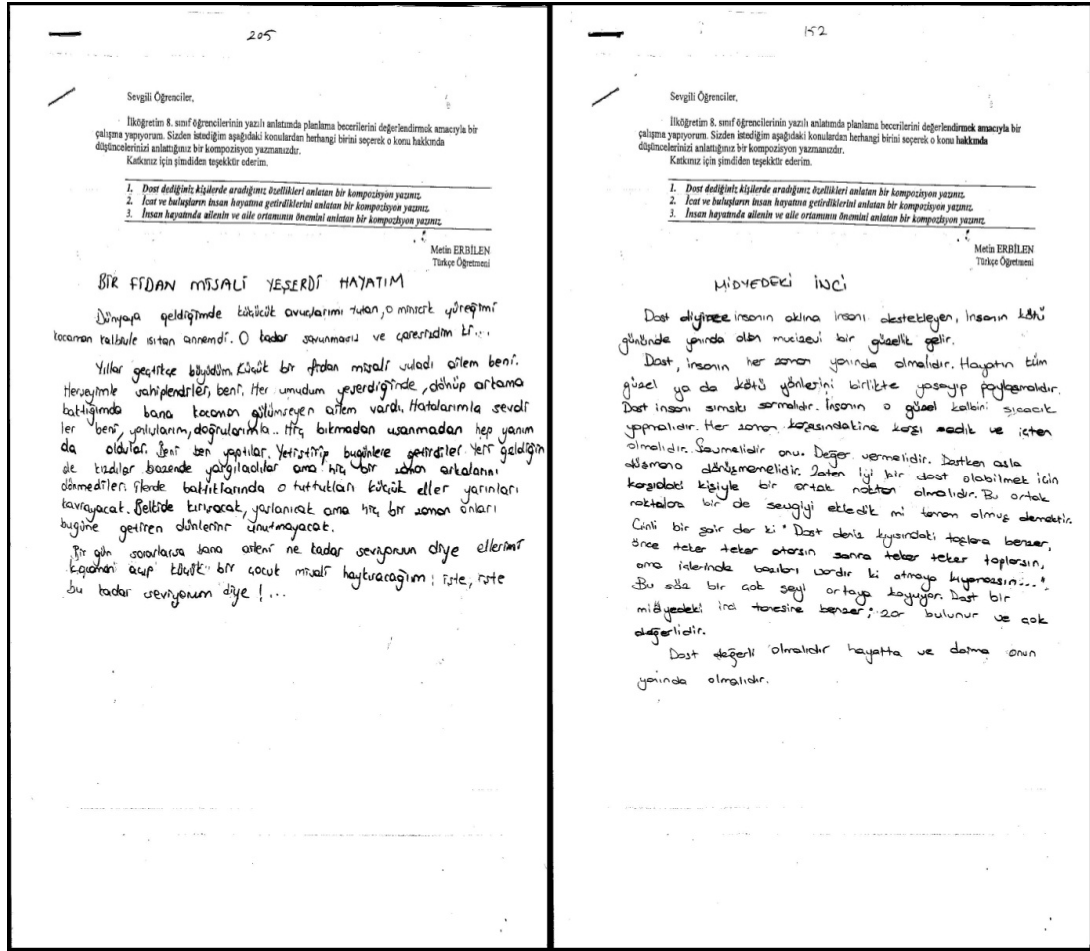 205
Sevgili Öğrenciler,
İlköğretim 8. sınıf öğrencilerinin yazılı anlatımda planlama becerilerini değerlendirmek amacıyla bir
çalışma yapıyorum. Sizden istediğim aşağıdaki konulardan herhangi birini seçerek o konu hakkında
düşüncelerinizi anlattığınız bir kompozisyon yazmanızdır.
Katkınız için şimdiden teşekkür ederim.
1. Dost dediğiniz kişilerde aradığınız özellikleri anlatan bir kompozisyon yazınız.
2. İcat ve buluşların insan hayatına getirdiklerini anlatan bir kompozisyon yazınız.
3. İnsan hayatında ailenin ve aile ortamının önemini anlatan bir kompozisyon yazınız.
Metin ERBİLEN
Türkçe Öğretmeni
BİR FİDAN MİSALİ YEŞERDİ HAYATIM
Dünyaya geldiğimde küçücük avuçlarımı tutan, o minicik yüreğimi
kocaman kalbiyle ısıtan annemdi. O kadar savunmasız ve çaresizdim ki...
Yıllar geçtikçe büyüdüm. Küçük bir fidan misali suladı ailem beni.
Herşeyimle sahiplendiler, beni. Her umudum yeşerdiğinde, dönüp arkama
baktığımda bana kocaman gülümseyen ailem vardı. Hatalarımla sevdi
ler beni, yanlışlarım, doğrularımla.. Hiç bıkmadan usanmadan hep yanım
da oldular. Beni ben yaptılar. Yetiştirip bugünlere getirdiler. Yeri geldiğin
de kızdılar bazende yargıladılar ama hiç bir zaman arkalarını
dönmediler. İlerde baktıklarında o tuttukları küçük eller yarınları
kavrayacak. Belkide kırılacak, yaslanıcak ama hiç bir zaman onları
bugüne getiren dünlerini unutmayacak.
Bir gün sorarlarsa bana aileni ne kadar seviyorsun diye ellerimi
kocaman açıp küçük bir çocuk misali haykıracağım; işte, işte
bu kadar seviyorum diye !...
152
Sevgili Öğrenciler,
İlköğretim 8. sınıf öğrencilerinin yazılı anlatımda planlama becerilerini değerlendirmek amacıyla bir
çalışma yapıyorum. Sizden istediğim aşağıdaki konulardan herhangi birini seçerek o konu hakkında
düşüncelerinizi anlattığınız bir kompozisyon yazmanızdır.
Katkınız için şimdiden teşekkür ederim.
1. Dost dediğiniz kişilerde aradığınız özellikleri anlatan bir kompozisyon yazınız.
2. İcat ve buluşların insan hayatına getirdiklerini anlatan bir kompozisyon yazınız.
3. İnsan hayatında ailenin ve aile ortamının önemini anlatan bir kompozisyon yazınız.
Metin ERBİLEN
Türkçe Öğretmeni
MİDYEDEKİ İNCİ
Dost diyince insanın aklına insanı destekleyen, insanın kötü
gününde yanında olan mucizevi bir güzellik gelir.
Dost, insanın her zaman yanında olmalıdır. Hayatın tüm
güzel ya da kötü yönlerini birlikte yaşayıp paylaşmalıdır.
Dost insanı sımsıkı sarmalıdır. İnsanın o güzel kalbini sıcacık
yapmalıdır. Her zaman karşısındakine karşı sadık ve içten
olmalıdır. Savmelidir onu. Değer vermelidir. Dostken asla
düşmana dönüşmemelidir. Zaten iyi bir dost olabilmek için
karşıdaki kişiyle bir ortak noktan olmalıdır. Bu ortak
noktalara bir de sevgiyi ekledik mi tamam olmuş demektir.
Çinli bir şair der ki " Dost deniz kıyısındaki taşlara benzer,
önce teker teker atarsın sonra teker teker toplarsın,
ama içlerinde bazıları vardır ki atmaya kıyamazsın..."
Bu söz bir çok şeyi ortaya koyuyor. Dost bir
midyedeki inci tanesine benzer; zor bulunur ve çok
değerlidir.
Dost değerli olmalıdır hayatta ve daima onun
yanında olmalıdır.